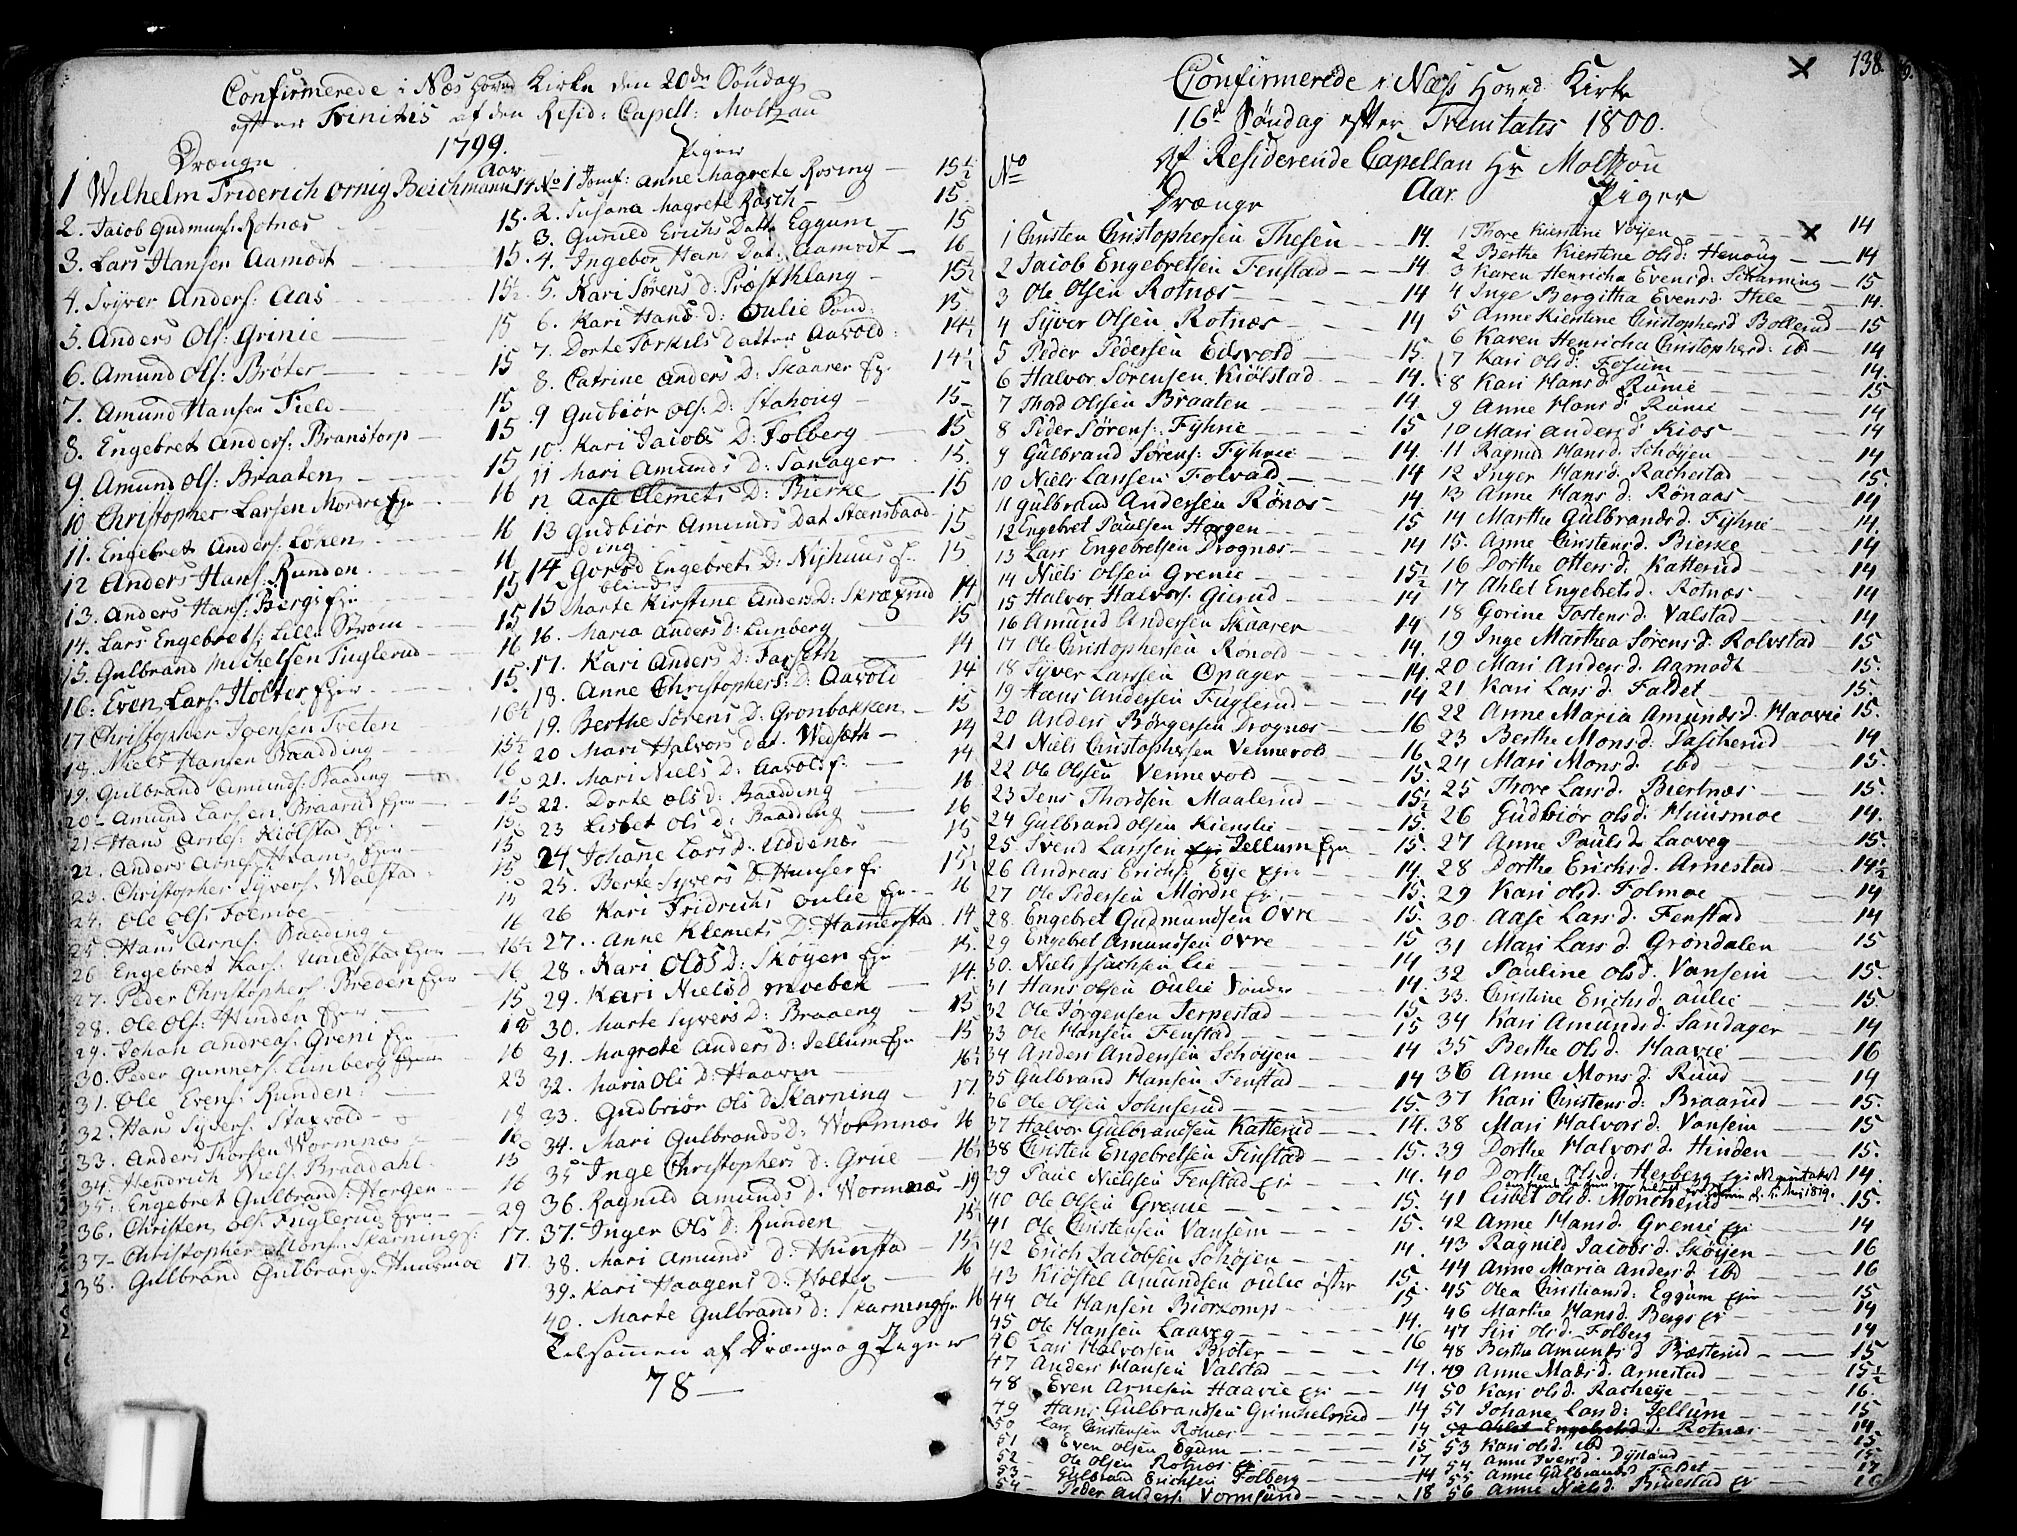 Confirmerede i Næs Hoved Kirke den 20de Söndag
efter Trinitis af den Resid: Capell: Moltzau
1799.
Drænge Aar
1 Wilhelm Friderich Ornig Beichmann 14
2. Jacob Gudmunds: Rotnæs 15.
3. Lars Hansen Aamodt 15.
4. Syver Anders: Aas 15½
5. Anders Ols: Grinie 15
6. Amund Ols: Bröter 15
7. Amund Hansen Field 15
8. Engebret Anders: Branstorp 15
9. Amund Ols: Braaten 15
10. Christopher Larsen Mordre Eje 16
11. Engebret Anders: Löken 16
12 Anders Hans: Runden 16
13. Anders Hans: Bergs Eje 15
14. Lars Engebrets: Lille Strom 15
15. Gulbrand Michelsen Fuglerud 16
16. Even Lars: Holter Ejer 15.
17. Christopher Joensen Tveten 16½
18. Niels Hansen Baadding 15½
19. Gulbrand Amunds: Baading 16
20. Amund Larsen Braarud Ejer
21. Hans Arnes: Kiölstad Eje 15
22. Anders Arnes: Hvams Ejer 15
23. Christopher Syvers: Walstad 15
24. Ole Ols: Folmoe 15
25. Hans Arnes: Baading 16
26 Engebret Kars: Ejer 16½
27. Peder Christophers: Breden Ejer 16
28. Ole Ols: Hinden Ejer 15
29. Johan Andreas: Greni Eje 18
30. Peder Gunners: Limberg Ejer 16
31. Ole Evens: Runden 23
32. Hans Syvers: Staxvold 18
33. Anders Thorsen Wormnæs 16
34. Hendrich Niels: Braadahl 15
35. Engebret Gulbrands: Horgen 16
36. Christen Ols: Fuglerud Ejer 29
37. Christopher Mons: Skarnings: 17.
38. Gulbrand Gulbrans: Huusmoe 17.
Piger
No 1 Jomf: Anne Magrete Rosing 15½
2. Susana Magrete Rasch 15.
3. Gunild Erichs Datt Eggum 15
4. Ingebor Hans Dat: Aamodt 16
5. Kari Sörens d: Præstchlang 15½
6. Kari Hans d: Oulie Sönd: 15
7. Dorte Torkils Datter Aavold: 14½
8. Catrine Anders D: Skaarer Eje. 14½
9 Gudbiör Ols: D: Stahoug 15
10. Kari Jacobs D: Folberg 15
11 Mari Amunds D: Sanager 15.
12 Aase Clemets D: Bierke 15
13 Gudbiör Amunds Dat Stænsbaadding 15
14 Gorod Engebrets D: Nyhuus E. 15
blind
15 Marte Kirstine Anders D: Skræerud 14
16. Maria Anders D: Lunberg 15
17. Kari Anders D: Farseth 14
18. Anne Christophers: D: Aavold 14
19. Berthe Sörens D: Gronbakken 15
20 Mari Halvors dat. Wedseth 14
21. Mari Niels D: Aavold E. 14
22. Dorte Ols d: Baadding 16
23 Lisbet Ols d: Baadding 16
24. Johane Lars D: Uddenæs 15
25. Berte Syvers D Hunser E: 15½
26 Kari Fridrichs Oulie Eje. 16
27. Anne Klemets D: Hamerstad 14
28. Kari Olds D: Skøyen Eje 15.
29. Kari Niels D Moebek 14.
30. Marte Syvers D: Braaeng 15
31. Magrete Anders D: Jellum Eje 15
32. Maria Ols D: Haavin 16½
33. Gudbriör Ols D Skarning 17.
34. Mari Gulbrands D: Wormnæs 16
35 Inge Christophers d: Grue 16½
36. Ragnild Amunds D. Wormnæs 19
37. Inger Ols D: Runden 15½
38. Mari Amunds D: Hunstad 15½
39. Kari Haagens D: Holter 16
40. Marte Gulbrands d: Skarning Eje 16
Tilsamen af Drænge og Piger
78
138.
Confirmerede i Næss Hoved Kirke
16d Söndag efter Trenitatis 1800.
af Residerende Capellan Hr Moltzou
No Drænge Aar
1 Christen Christophersen Thesen 14.
2 Jacob Engebretsen Fenstad 14.
3 Ole Olsen Rotnæs 14
4 Syver Olsen Rotnæs 14
5 Peder Pedersen Edsvold 15.
6 Halvor Sørensen Kiölstad 14.
7 Thord Olssen Braaten 14
8 Peder Sørens: Fyhrie 15
9 Gulbrand Sørens: Fyhrie 14.
10 Niels Larssen Folvad 14
11 Gulbrand Andersen Rönos 14
12 Engebret Paulsen Horgen 15
13 Lars Engebretsen Drognæs 14
14 Niels Olsen Grenie 15½
15 Halvor Halvors: Gurud 14
16 Amund Andersen Skaarer 14
17 Ole Christophersen Ronold 14.
18 Syver Larssen Opager 14.
19 Hans Andersen Fuglerud 14
20 Anders Börgersen Drognæs 16
21 Niels Christophersen Vennevold 16
22 Ole Olssen Vennevold 15
23 Jens Thordsen Maalerud 15½
24 Gulbrand Olsen Kienslie 15.
25 Svend Larssen Jellum Eje 15.
26 Andreas Erichs: Eye Eje 14.
27 Ole Pedersen Mordre Ei 15.
28. Engebret Gudmundsen Övre 15.
29 Engebret Amundsen Övre 15
30. Niels Isachsen Lie 14
31 Hans Olsen Oulie Sönder 14.
32 Ole Jörgensen Jerpestad 15
33 Ole Hansen Fenstad 15
34 Anders Andersen Schöjen 14
35 Gulbrand Hansen Fenstad 14
36 Ole Olsen Johnserud 15.
37 Halvor Gulbrandsen Katterud 14.
38 Christen Engebretsen Finstad 15.
39 Paul Nielsen Fenstad Ei 14.
40 Ole Olsen Grenie 15.
41 Ole Christensen Vansem 15.
42 Erich Jacobsen Schöjen 14.
43 Kiöstel Amundsen Oulie öster 15.
44 Ole Hansen Biorkomp 15
45 Ole Hansen Laaveg 14.
46 Lars Halvorsen Bröter 16
47 Anders Hansen Valstad 14.
48 Even Arnesen Haavie Ei 14
49 Hans Gulbrandsen Grimhelsrud 14
50 Lars Christensen Rotnæs 14
51 Even Olsen Egum 15
52 Ole Olsen Rotnæs Ei 17
53 Gulbrand Erichsen Folberg 14
54 Peder Anders: Vormsund 18
Piger
1 Thore Kierstine Vöyen 14
2 Berthe Kierstine Olsd: Henoug 14
3 Karen Henricha Evensd: Scharning 15
4 Inge Bergitha Evensd. Hile 14.
5 Anne Kierstine Christopherd Bollerud 15
6 Karen Henricha Christopherd: ibd 14
7 Kari Olsd: Fosum 14.
8 Kari Hansd. Runie 15
9 Anne Hansd. Runie 14
10 Mari Andersd: Kios 14
11 Ragnild Hansd: Schöjen 14
12 Inger Hansd: Rachestad 15.
13 Anne Hansd: Rönaas 14
14 Marthe Gulbrandsd. Fyhrie 14
15. Anne Christensd. Bierke 14
16 Dorthe Ottersd: Katterud 14
17 Ahlet Engebretsd: Rotnæs 14
18 Gorine Tostensd: Valstad 14
19 Inge Marthea Sörensd: Rolvstad 15
20 Mari Andersd. Aamodt 15.
21 Kari Larsd: Faldet 15.
22 Anne Maria Amundsd. Haavie 15.
23 Berthe Monsd: Dascherud 14
24 Mari Monsd: ibd 15.
25 Thore Larsd. Biertnæs 15.
26 Gudbiör Olsd: Huusmoe 14.
27 Anne Paulsd Laaveg 15.
28 Dorthe Erichsd: Arnestad 14½
29 Kari Olsd. Folmoe 14
30. Aase Larsd. Fenstad 14
31 Mari Larsd. Grøndalen 15
32 Pauline Olsd. Vansem 15
33. Christine Erichsd: Oulie 15
34 Kari Amundsd: Sandager 14
35 Berthe Olsd. Haavie 16
36 Anne Monsd. Ruud 14
37 Kari Christensd: Braarud 15.
38 Mari Halvorsd: Vansem 15
39 Dorthe Halvorsd. Hinden 15.
40 Dorthe Olsd: Herberg Ei 14.
41 Lisbet Olsd. Moncherud 15.
42 Anne Hansd. Grenie Ei 14
43 Ragnild Jacobsd. Sköyen 16
44 Anne Maria Andersd ibd 16
45 Olea Christiansd: Eggum Eje 15
46 Marthe Hansd. Bergs Ei 14
47 Siri Olsd. Folberg 14
48 Berthe Amundsd Præsterud 15
49 Anne Madsd. Arnestad 15½
50 Kari Olsd. Racheye 16.
51 Johane Larsd: Jellum 15
52 Ahlet Engebretsd: Rotnæs 14
53 Kari Olsd: ibd 15
54 Anne Iversd. Dysland 15
55 Anne Gulbrandsd Faldet 17
56 Anne Nielsd. Ei 16